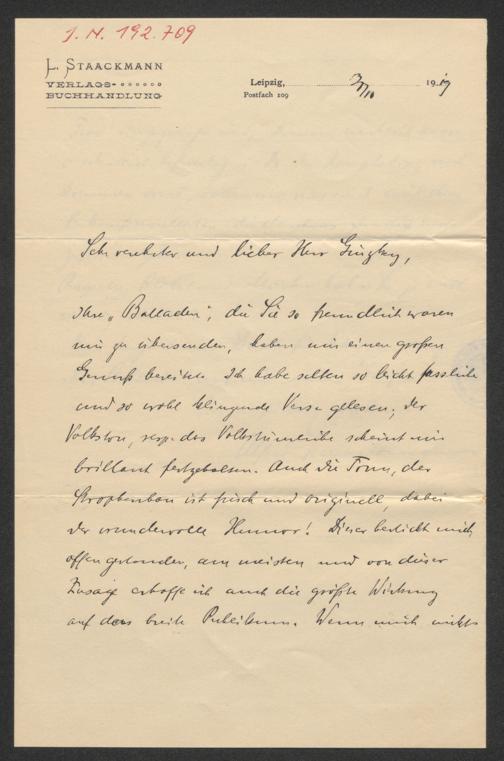 J. N. 192.709
L. STAACKMANN
VERLAGS-
BUCHHANDLUNG
Leipzig, 19.19
Postfach 109
Sehr verehrter und lieber Herr Ginzkey,
Ihre „Balladen“, die Sie so freundlich waren
mir zu übersenden, haben mir einen großen
Genuß bereitet. Ich habe selten so leicht fassliche
und so wohl klingende Verse gelesen, der
Volkston, resp. das Volkstümliche scheint mir
brillant festgehalten. Auch die Form, der
Strophenbau ist frisch und originell, dabei
der wundervolle Humor! Dieser besticht mich
offen gestanden, am meisten und von dieser
erhoffe ich auch die größte Wirkung
auf das breite Publikum. Wenn mich nichts